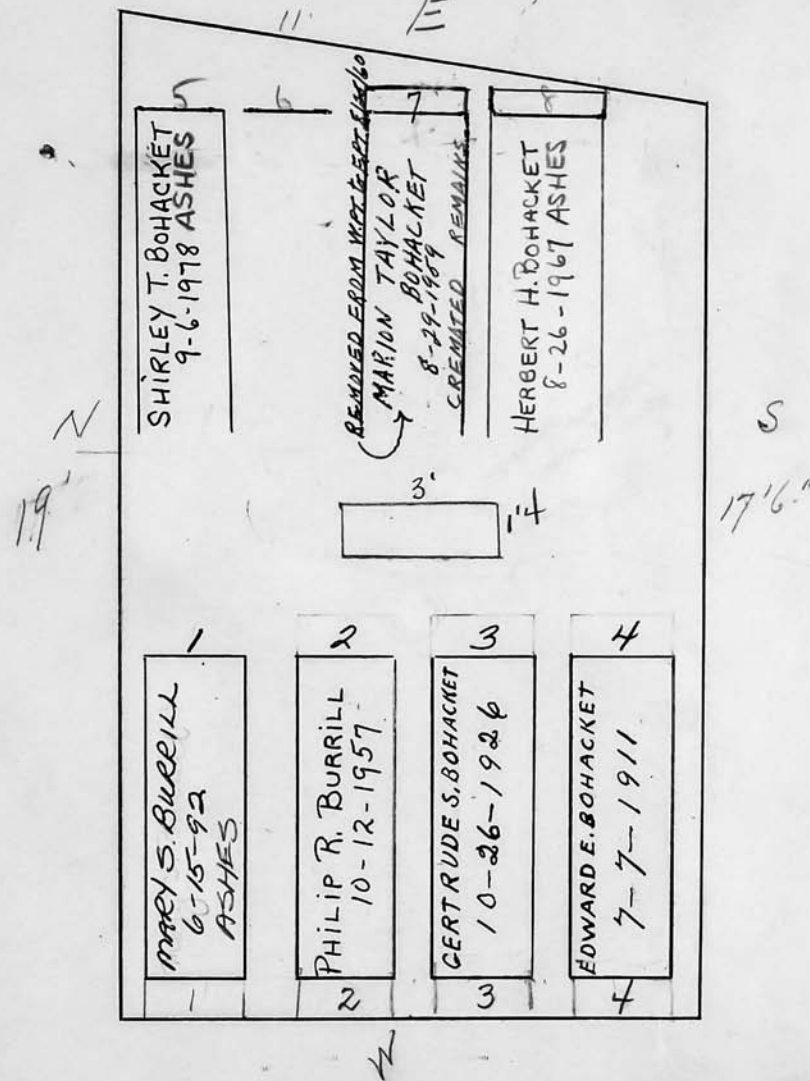 11'
E
5
6
7
8
SHIRLEY T. BOHACKET
9-6-1978 ASHES
REMOVED FROM W.PT. to E.PT.
MARION TAYLOR
BOHACKET
8-29-1959
CREMATED REMAINS
HERBERT H. BOHACKET
8-26-1967 ASHES
N
19'
S
17'6"
3'
1'4
1
2
3
4
MARY S. BURRILL
6-15-92
ASHES
PHILIP R. BURRILL
10-12-1957
GERTRUDE S. BOHACKET
10-26-1926
EDWARD E. BOHACKET
7-7-1911
1
2
3
4
W